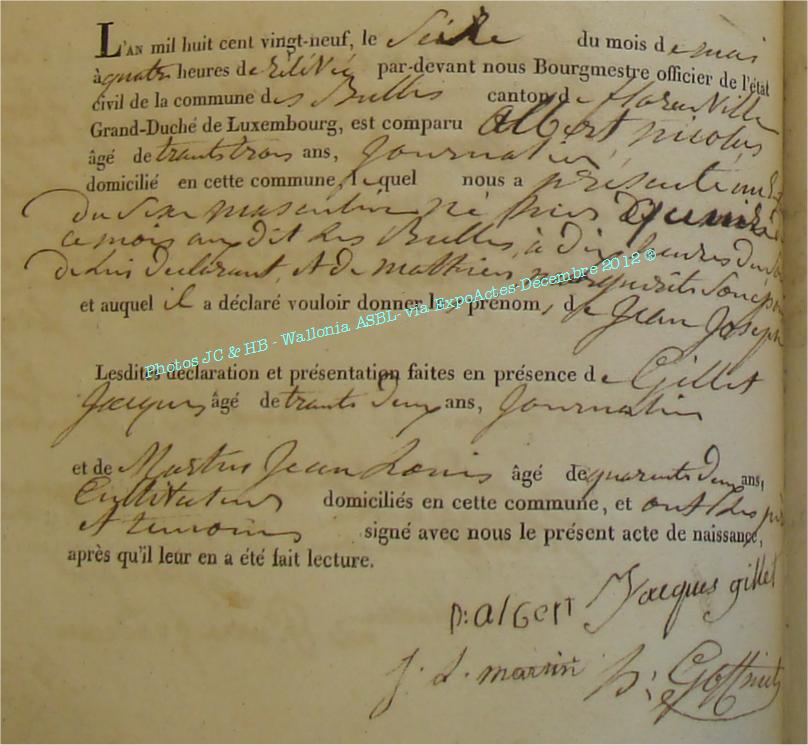 L'AN mil huit cent vingt-neuf, le Seize du mois de mai
à quatre heures de rélévée par-devant nous Bourgmestre officier de l'état
civil de la commune des Bulles canton de florenville
Grand-Duché de Luxembourg, est comparu Albert nicolas
âgé de trante trois ans, journalier
domicilié en cette commune, lequel nous a présenté un
du Sexe masculin né hier quinze
ce mois au dit Les Bulles, à dix heures du
de Lui déclarant, et de mathieu
et auquel il a déclaré vouloir donner les prénoms de Jean Joseph
Photos JC & HB - Wallonia ASBL- via ExpoActes-Décembre 2012 ®
Lesdites déclaration et présentation faites en présence de Gillet
Jacques âgé de trante deux ans, journalier
et de Jean Louis âgé de quarente deux ans,
Cultivateur domiciliés en cette commune, et ont les
et temoins signé avec nous le présent acte de naissance,
après qu'il leur en a été fait lecture.
n: albert Jacques gillet
J. L. H: Goffinet